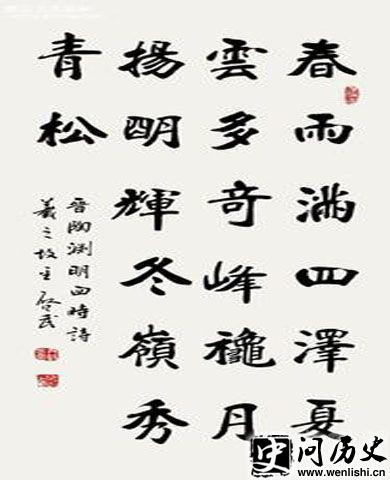 春雨滿四澤夏
雲多奇峰穐月
揚明輝冬嶺秀
青松
晉陶渊明四時詩
羲之故里
问历史
www.wenlishi.cn